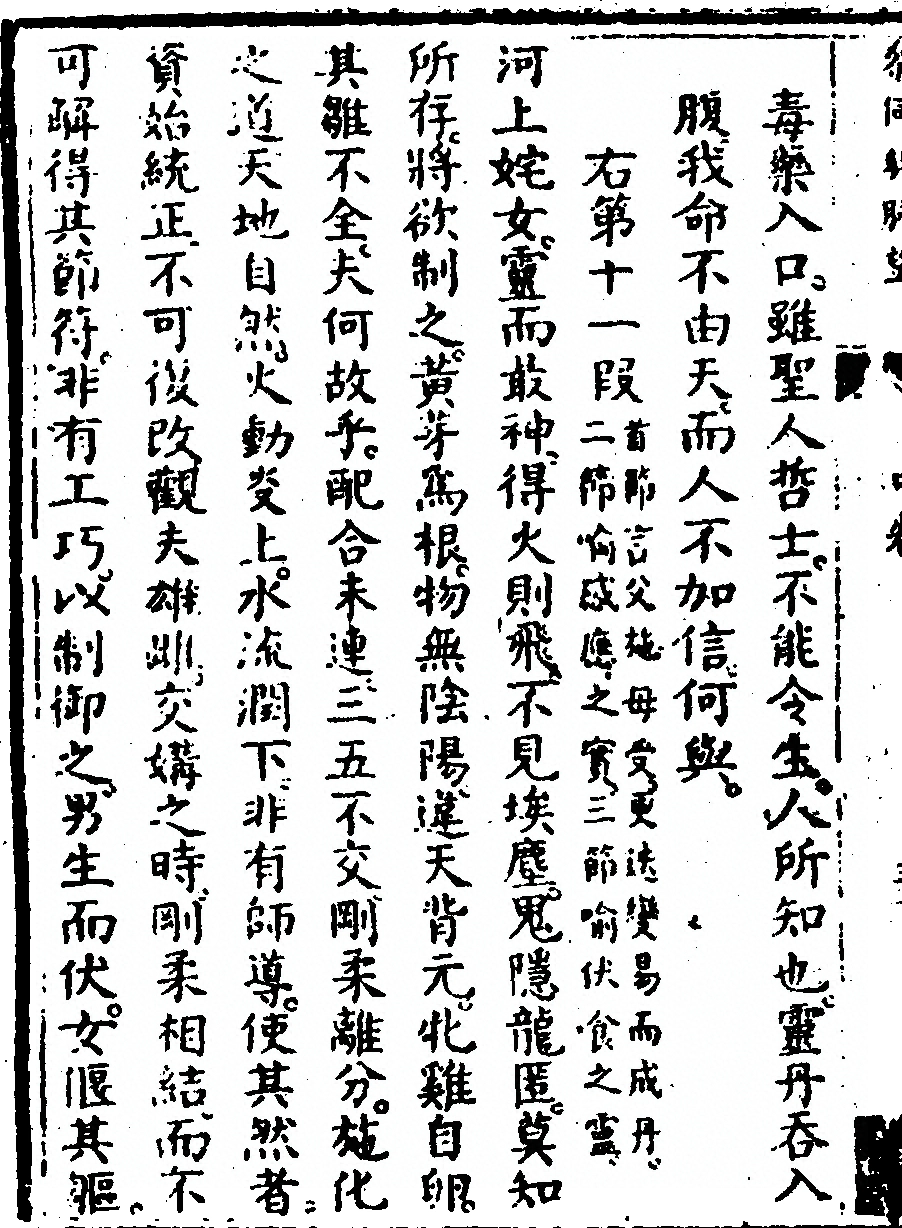 毒藥入口。雖聖人哲士。不能令生。人所知也。靈丹吞入
腹。我命不由天。而人不加信。何與。
右第十一段
首節言父施母受、更迭變易而成丹。
二節喻感應之實、三節喻伏食之靈、
河上姹女。靈而敢神。得火則飛。不見埃塵。鬼隱龍匿。莫知
所存。將欲制之。黃芽爲根。物無陰陽。違天背元。牝雞自卵。
其雛不全。夫何故乎。配合未連。三五不交。剛柔離分。施化
之道。天地自然。火動炎上。水流潤下。非有師導。使其然者。
資始統正。不可復改。觀夫雄雌。交媾之時。剛柔相結。而不
可解。得其節符。非有工巧。以制御之。男生而伏。女偃其軀。